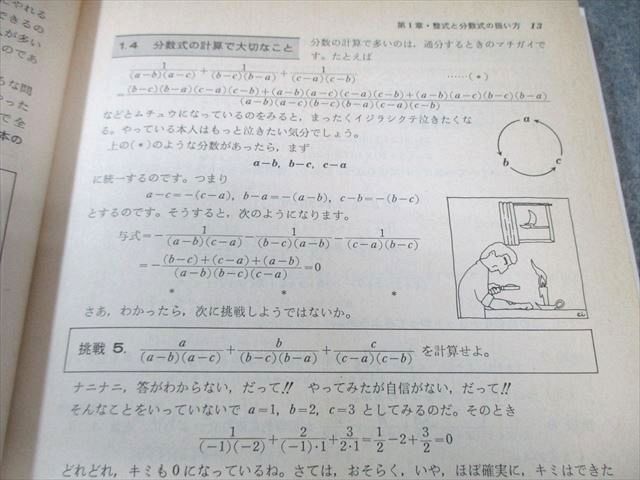 やれる
できるの
人が多い
のであ
うな問
やった
で全
本の
第1章・整式と分数式の扱い方 13
1.4 分数式の計算で大切なこと
分数の計算で多いのは，通分するときのマチガイで
す。たとえば
1/(a−b)(a−c) + 1/(b−c)(b−a) + 1/(c−a)(c−b) ……(*)
= (b−c)(b−a)(c−a)(c−b)+(a−b)(a−c)(c−a)(c−b)+(a−b)(a−c)(b−c)(b−a)/(a−b)(a−c)(b−c)(b−a)(c−a)(c−b)
などとムチュウになっているのをみると，まったくイジラシクテ泣きたくな
る。やっている本人はもっと泣きたい気分でしょう。
上の(*)のような分数があったら，まず
a−b, b−c, c−a
に統一するのです。つまり
a−c=−(c−a), b−a=−(a−b), c−b=−(b−c)
とするのです。そうすると，次のようになります。
与式=− 1/(a−b)(c−a) − 1/(b−c)(a−b) − 1/(c−a)(b−c)
=− (b−c)+(c−a)+(a−b)/(a−b)(b−c)(c−a) =0
a
b
c
* * *
さあ，わかったら，次に挑戦しようではないか。
挑戦 5. a/(a−b)(a−c) + b/(b−c)(b−a) + c/(c−a)(c−b) を計算せよ。
ナニナニ，答がわからない，だって!! やってみたが自信がない，だって!!
そんなことをいっていないで a=1, b=2, c=3 としてみるのだ。そのとき
1/(−1)(−2) + 2/(−1)·1 + 3/2·1 = 1/2 −2+ 3/2 =0
どれどれ，キミも0になっているね。さては，おそらく，いや，ほぼ確実に，キミはできた